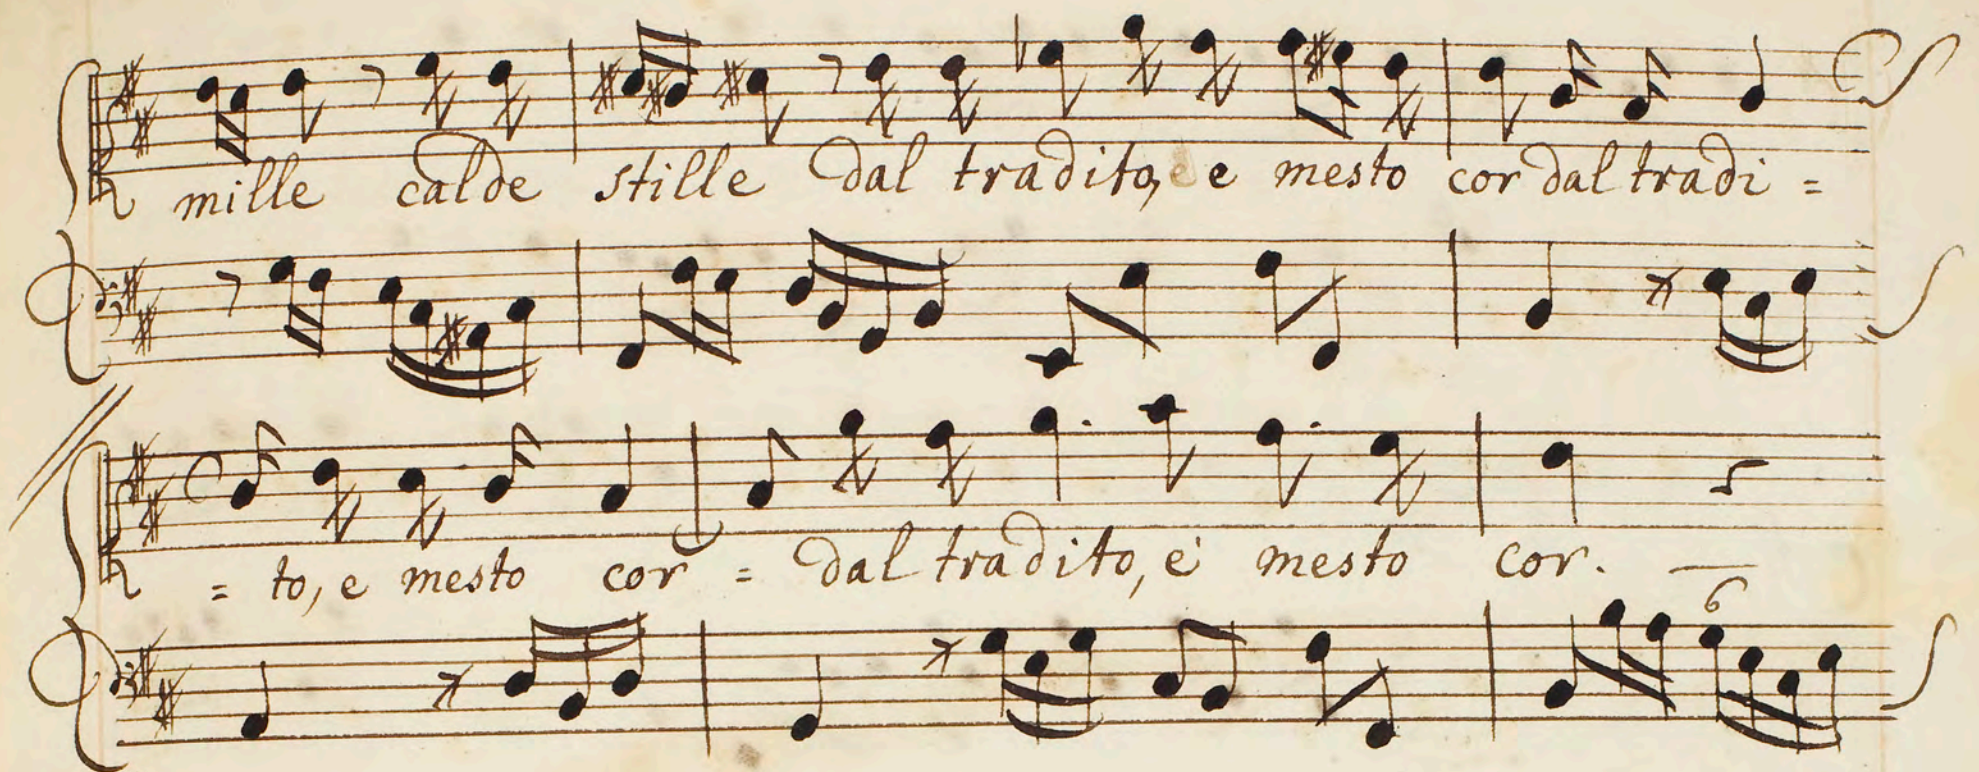 mille calde stille dal tradito, e mesto cor dal tradi =
= to, e mesto cor = dal tradito, e mesto cor.
6